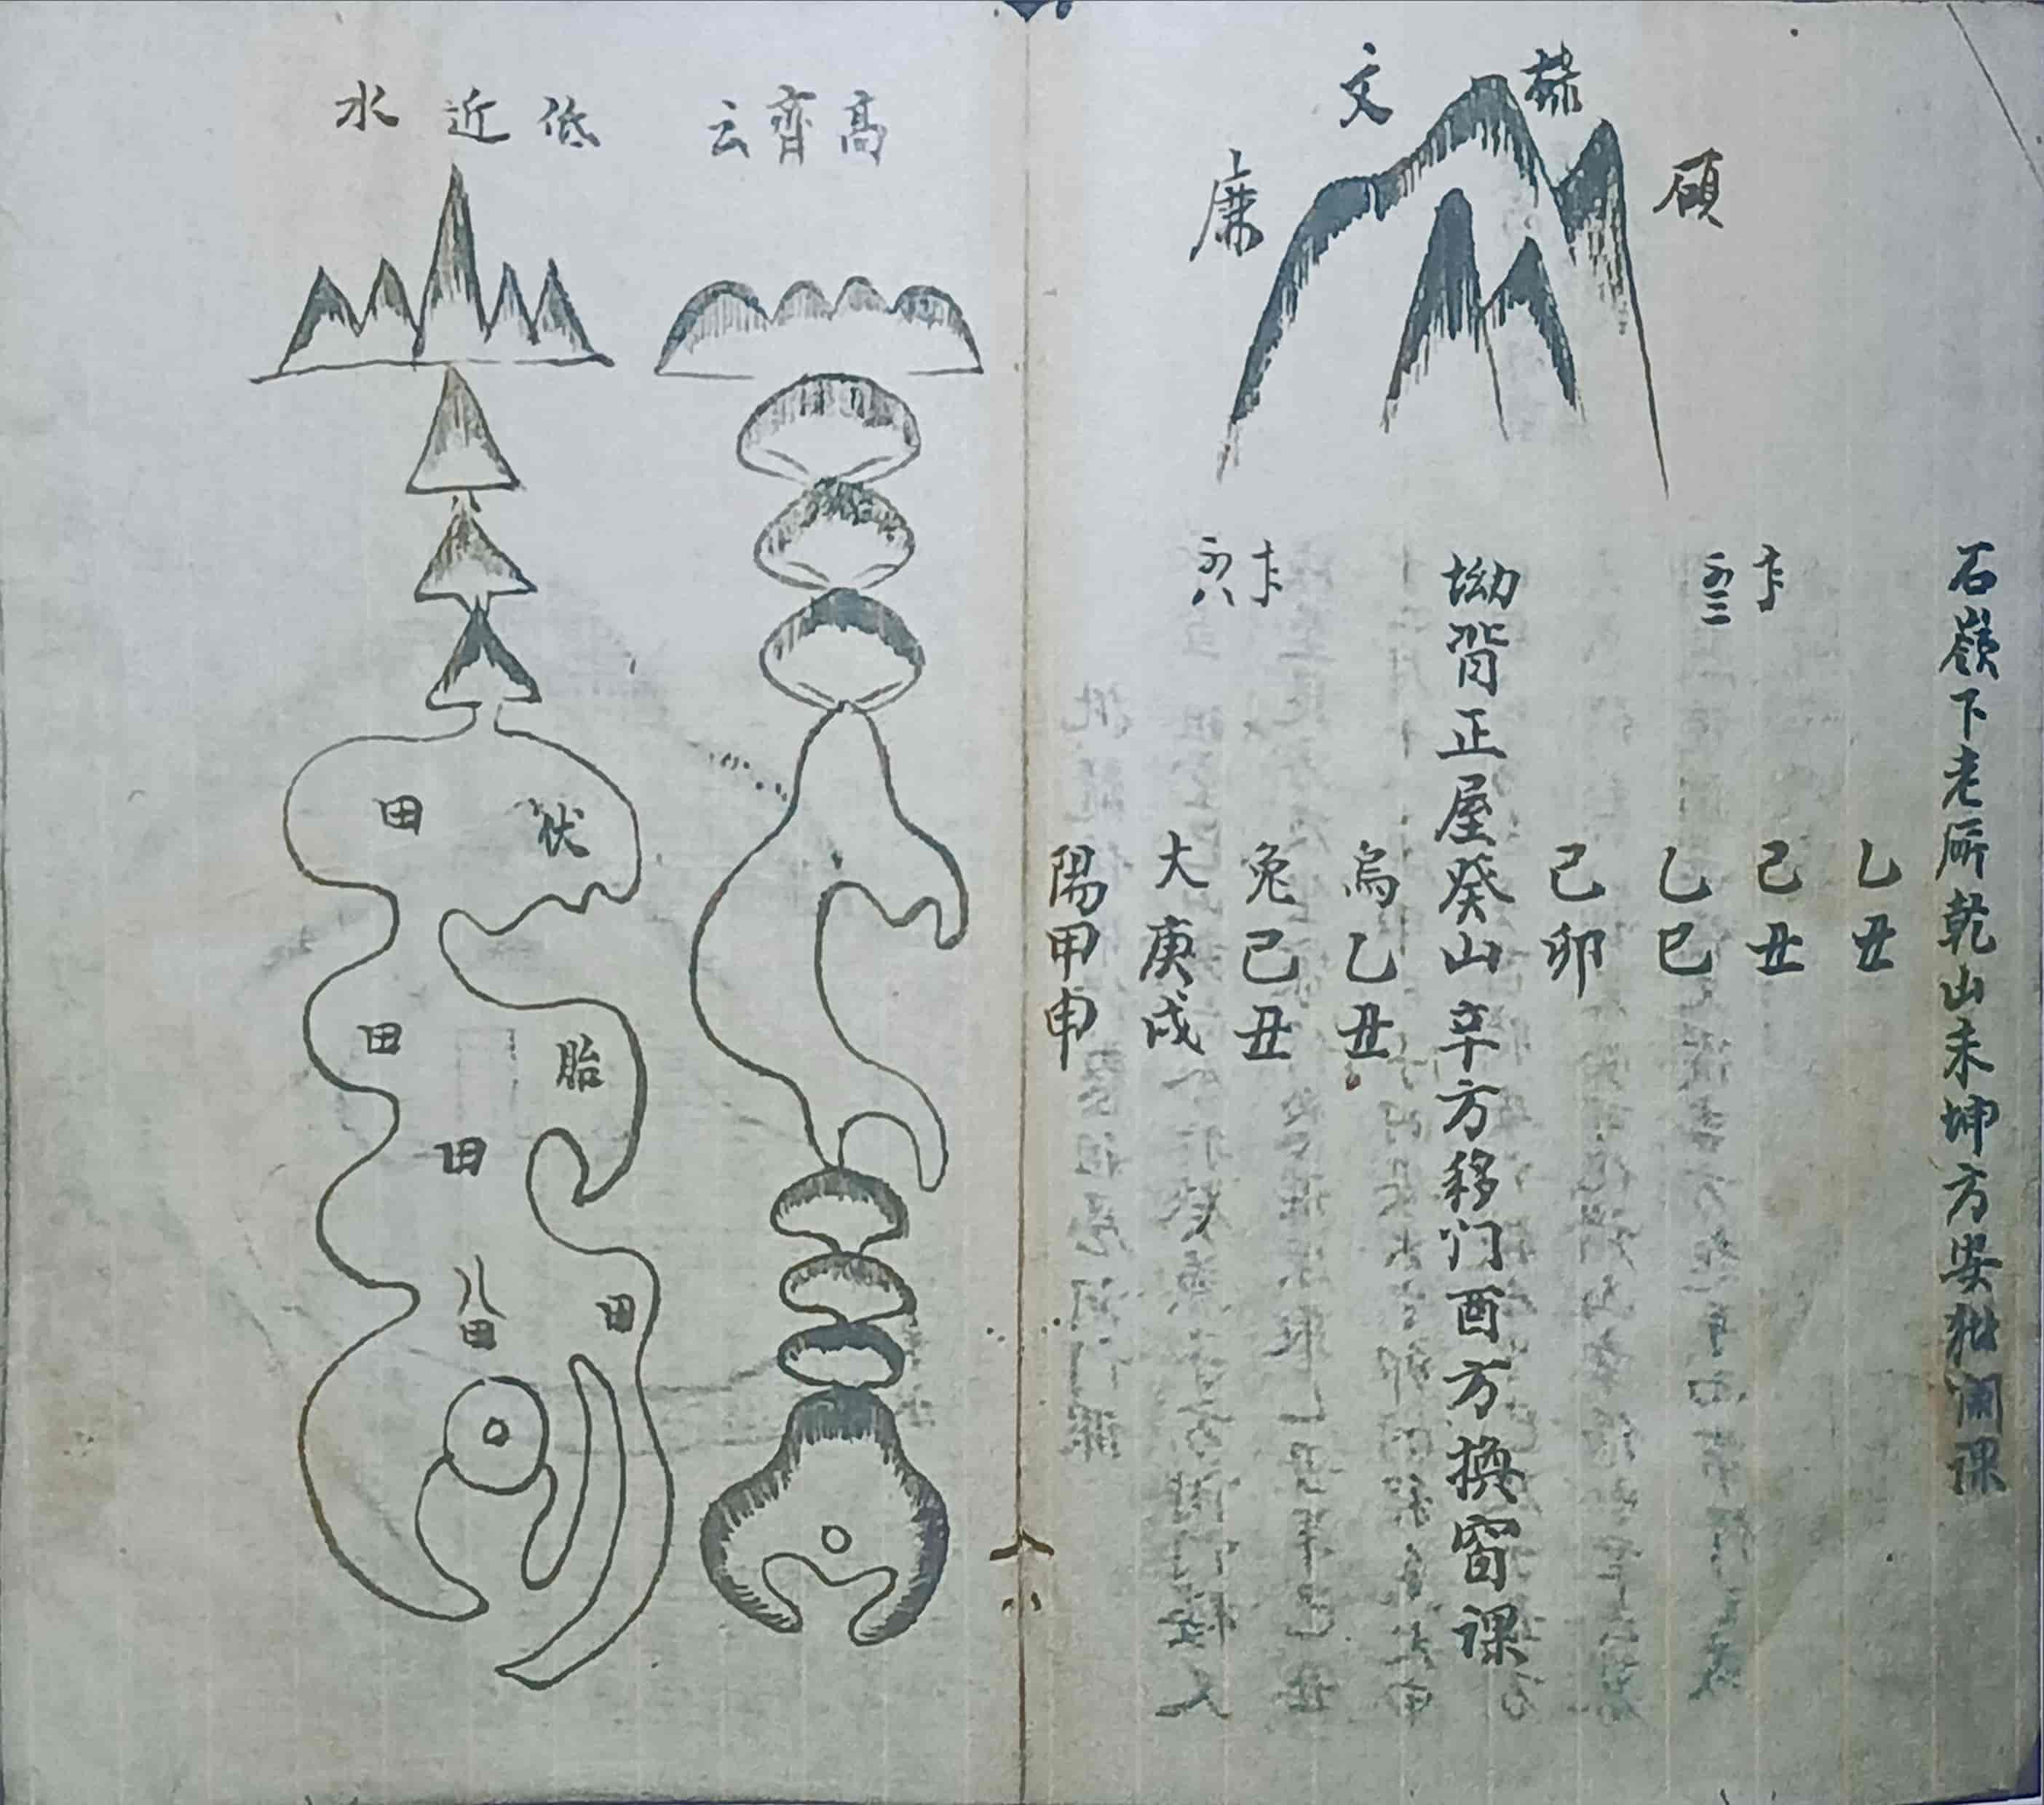 石嶺下老所乾山未坤方安㭰開课
乙丑
己丑
乙巳
己卯
坳背正屋癸山辛方移门酉方換窗课
烏乙丑
兔己丑
大庚戌
陽甲申
文
祿
廉
高齊云
低近水
伏
田
胎
田
田
八田
田